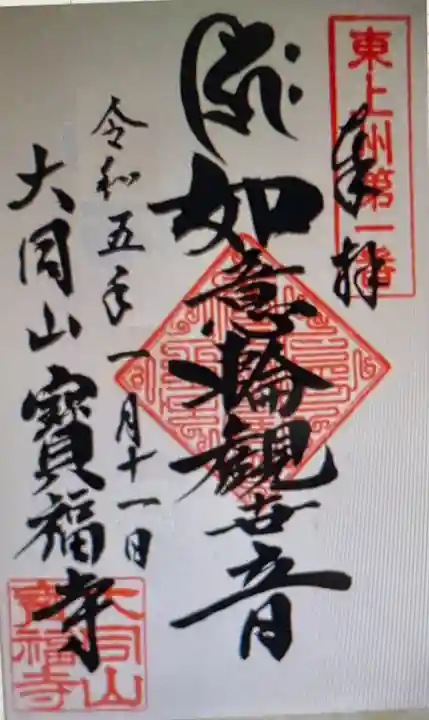 東上州第一番
奉拝
如意輪観世音
令和五年一月十一日
大同山寳福寺
大同山
寳福寺